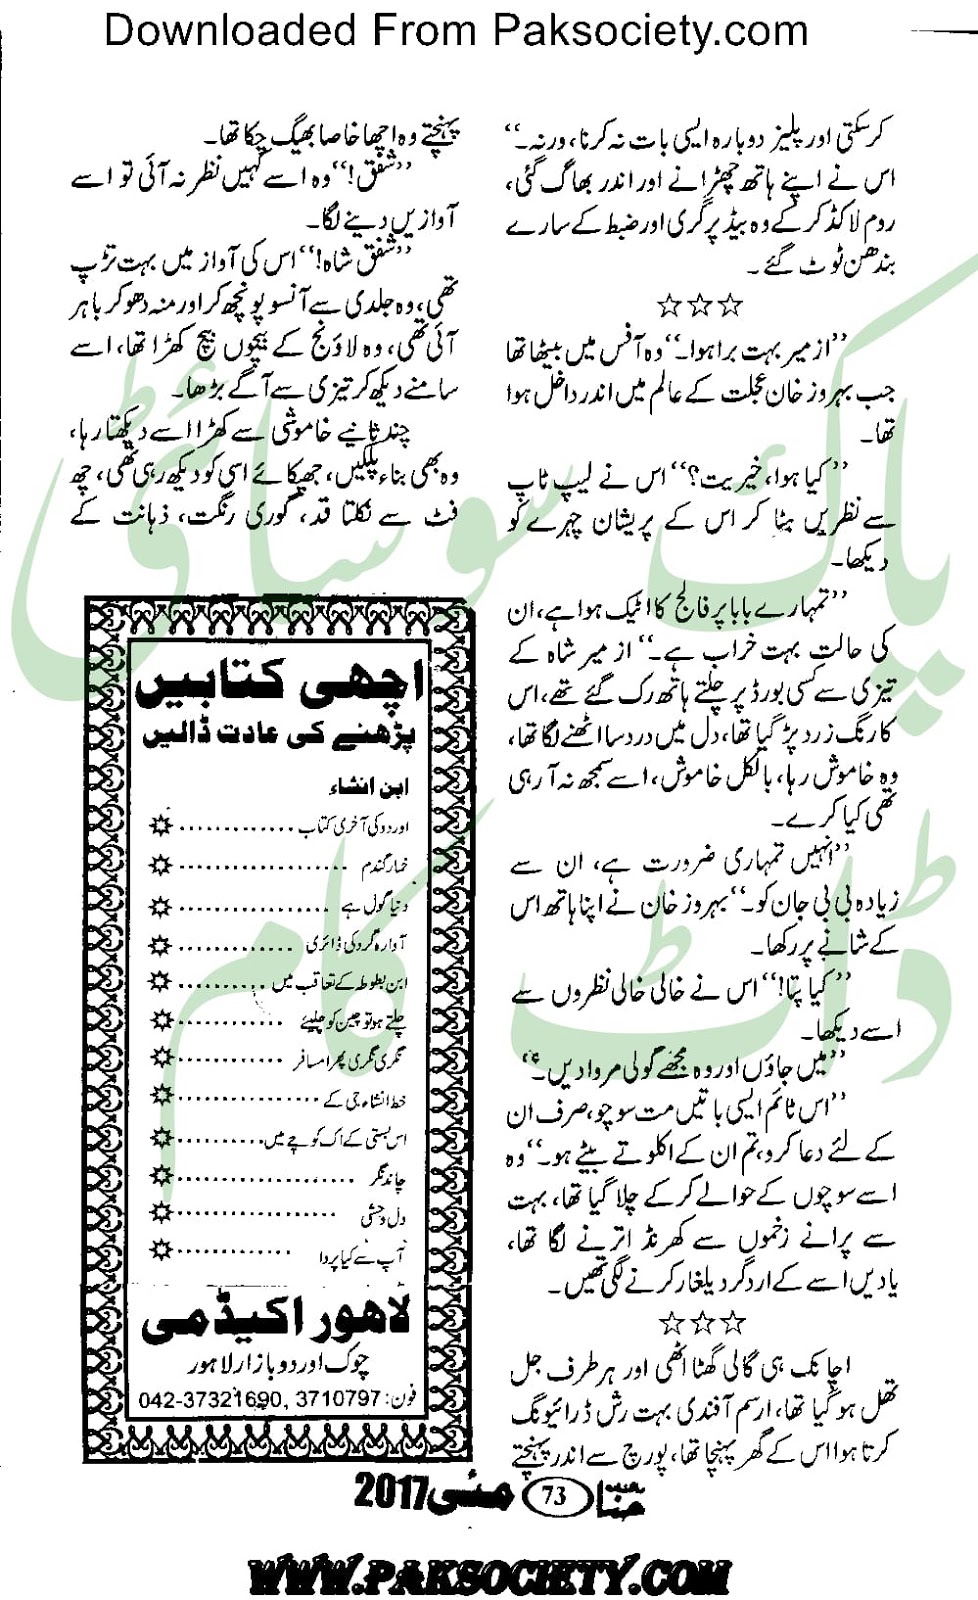 Downloaded From Paksociety.com
کر سکتی اور پلیز دوبارہ ایسی بات نہ کرنا، ورنہ۔‘‘
اس نے اپنے ہاتھ چھڑانے اور اندر بھاگ گئی،
روم لاکڈ کر کے وہ بیڈ پر گری اور ضبط کے سارے
بندھن ٹوٹ گئے۔
☆☆☆
’’ازمیر بہت برا ہوا۔‘‘ وہ آفس میں بیٹھا تھا
جب بہروز خان عجلت کے عالم میں اندر داخل ہوا
تھا۔
’’کیا ہوا، خیریت؟‘‘ اس نے لیپ ٹاپ
سے نظریں ہٹا کر اس کے پریشان چہرے کو
دیکھا۔
’’تمہارے بابا پر فالج کا اٹیک ہوا ہے، ان
کی حالت بہت خراب ہے۔‘‘ ازمیر شاہ کے
تیزی سے کسی بورڈ پر چلتے ہاتھ رک گئے تھے، اس
کا رنگ زرد پڑ گیا تھا، دل میں درد سا اٹھنے لگا تھا،
وہ خاموش رہا، بالکل خاموش، اسے سمجھ نہ آ رہی
تھی کیا کرے۔
’’انہیں تمہاری ضرورت ہے، ان سے
زیادہ بی بی جان کو۔‘‘ بہروز خان نے اپنا ہاتھ اس
کے شانے پر رکھا۔
’’کیا پتا!‘‘ اس نے خالی خالی نظروں سے
اسے دیکھا۔
’’میں جاؤں اور وہ مجھے گولی مروا دیں۔‘‘
’’اس ٹائم ایسی باتیں مت سوچو، صرف ان
کے لئے دعا کرو، تم ان کے اکلوتے بیٹے ہو۔‘‘ وہ
اسے سوچوں کے حوالے کر کے چلا گیا تھا، بہت
سے پرانے زخموں سے کھرنڈ اترنے لگا تھا،
یادیں اسے کے اردگرد یلغار کرنے لگی تھیں۔
☆☆☆
اچانک ہی گالی گھٹا اٹھی اور ہر طرف جل
تھل ہو گیا تھا، ارسم آفندی بہت رش ڈرائیونگ
کرتا ہوا اس کے گھر پہنچا تھا، پورچ سے اندر پہنچتے
پہنچتے وہ اچھا خاصا بھیگ چکا تھا۔
’’شفق!‘‘ وہ اسے کہیں نظر نہ آئی تو اسے
آوازیں دینے لگا۔
’’شفق شاہ!‘‘ اس کی آواز میں بہت تڑپ
تھی، وہ جلدی سے آنسو پونچھ کر اور منہ دھو کر باہر
آئی تھی، وہ لاؤنج کے بیچوں بیچ کھڑا تھا، اسے
سامنے دیکھ کر تیزی سے آگے بڑھا۔
چند ثانیے خاموشی سے کھڑا اسے دیکھتا رہا،
وہ بھی بناء پلکیں، جھپکائے اسی کو دیکھ رہی تھی، چھ
فٹ سے نکلتا قد، گوری رنگت، ذہانت کے
اچھی کتابیں
پڑھنے کی عادت ڈالیں
ابن انشاء
اوردو کی آخری کتاب .............
خمار گندم ...................
دنیا گول ہے ...................
آوارہ گرد کی ڈائری .............
ابن بطوطہ کے تعاقب میں ..........
چلتے ہو تو چین کو چلیئے ............
نگری نگری پھرا مسافر ............
خط انشاء جی کے ................
اس بستی کے اک کوچے میں ..........
چاند نگر ....................
دل وحشی ..................
آپ سے کیا پردا .............
لاہور اکیڈمی
چوک اوردو بازار لاہور
فون: 042-37321690, 3710797
حنا 73 مئی 2017
WWW.PAKSOCIETY.COM
پاک سوسائٹی
ڈاٹ کام